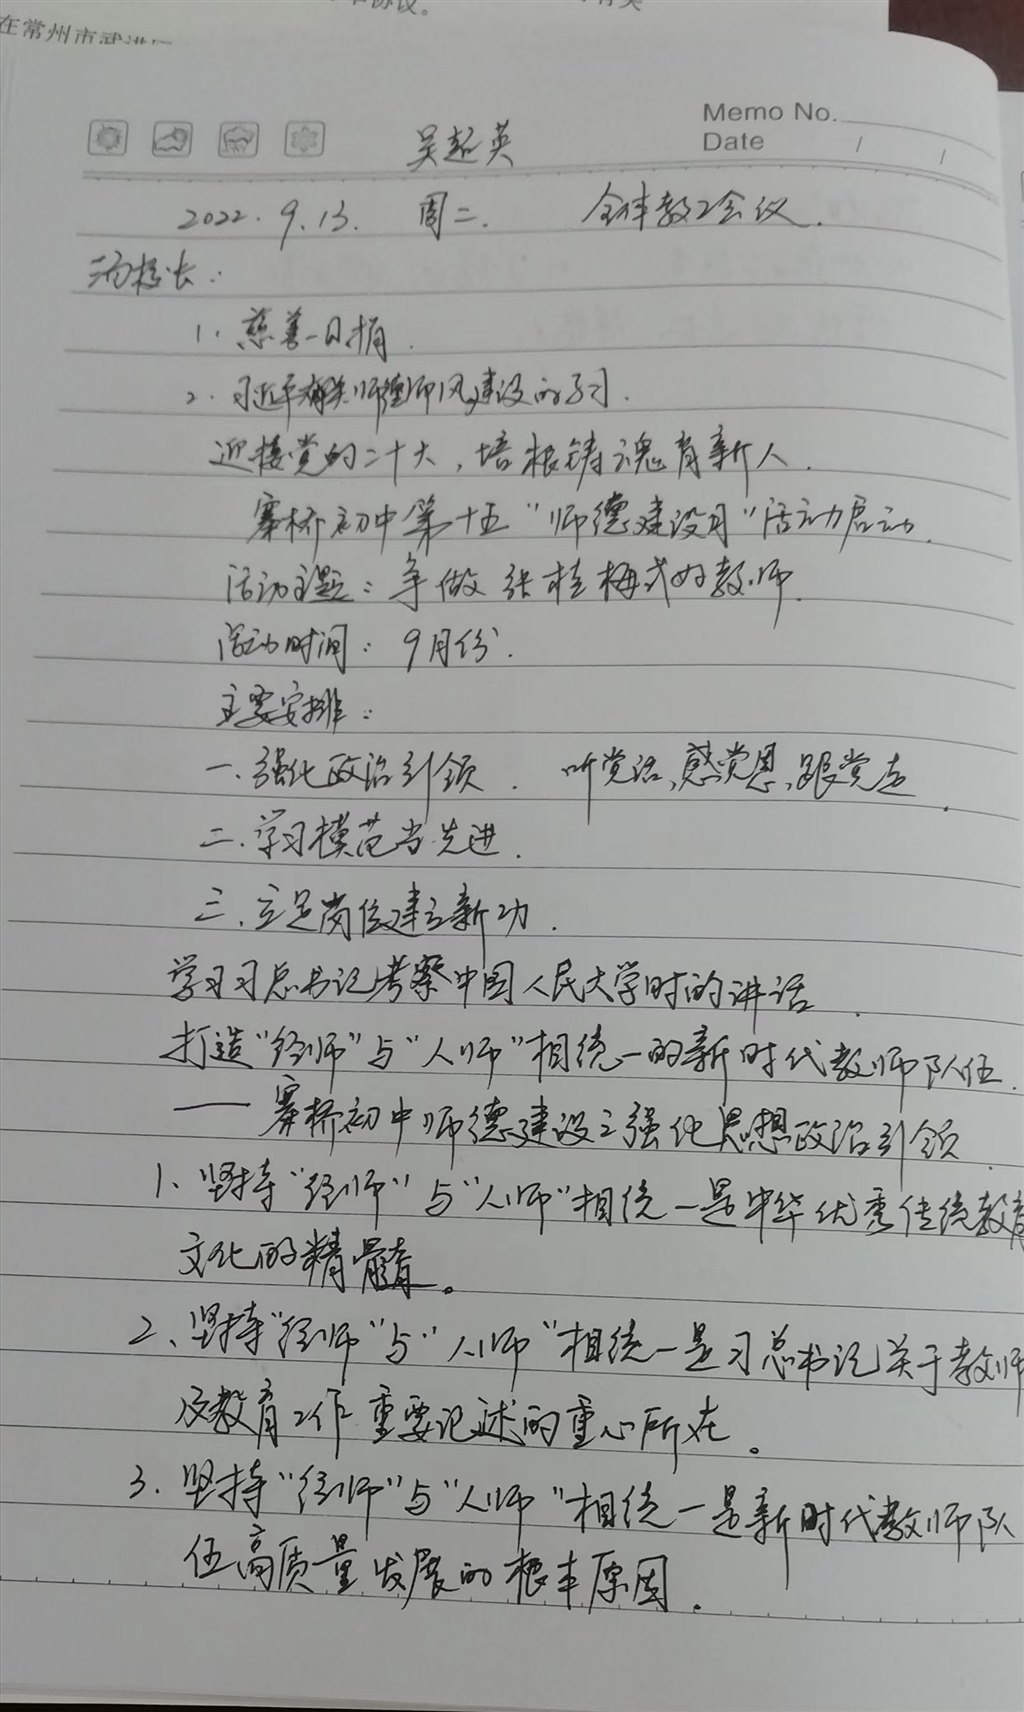 在常州市武进
协议。
Memo No.
Date / /
吴起英
2022.9.13. 周二. 全体教工会议.
汤校长:
1. 慈善一日捐.
2. 习近平有关师德师风建设的学习.
迎接党的二十大,培根铸魂育新人.
寨桥初中第十五"师德建设月"活动启动.
活动主题:争做张桂梅式好教师.
活动时间:9月份.
主要安排:
一.强化政治引领. 听党话、感党恩、跟党走.
二.学习模范当先进.
三.立足岗位建立新功.
学习习总书记考察中国人民大学时的讲话.
打造"经师"与"人师"相统一的新时代教师队伍.
——寨桥初中师德建设之强化思想政治引领.
1、坚持"经师"与"人师"相统一是中华优秀传统教育
文化的精髓。
2、坚持"经师"与"人师"相统一是习总书记关于教师
及教育工作重要记述的重心所在。
3.坚持"经师"与"人师"相统一是新时代教师队
伍高质量发展的根本原因.